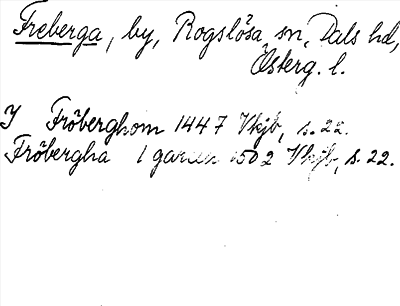 Freberga, by, Rogslösa sn, Dals hd,
Österg. l.
I Fröberghom 1447 Vkjb, s. 22.
Fröbergha 1 garden 1502 Vkjb, s. 22.